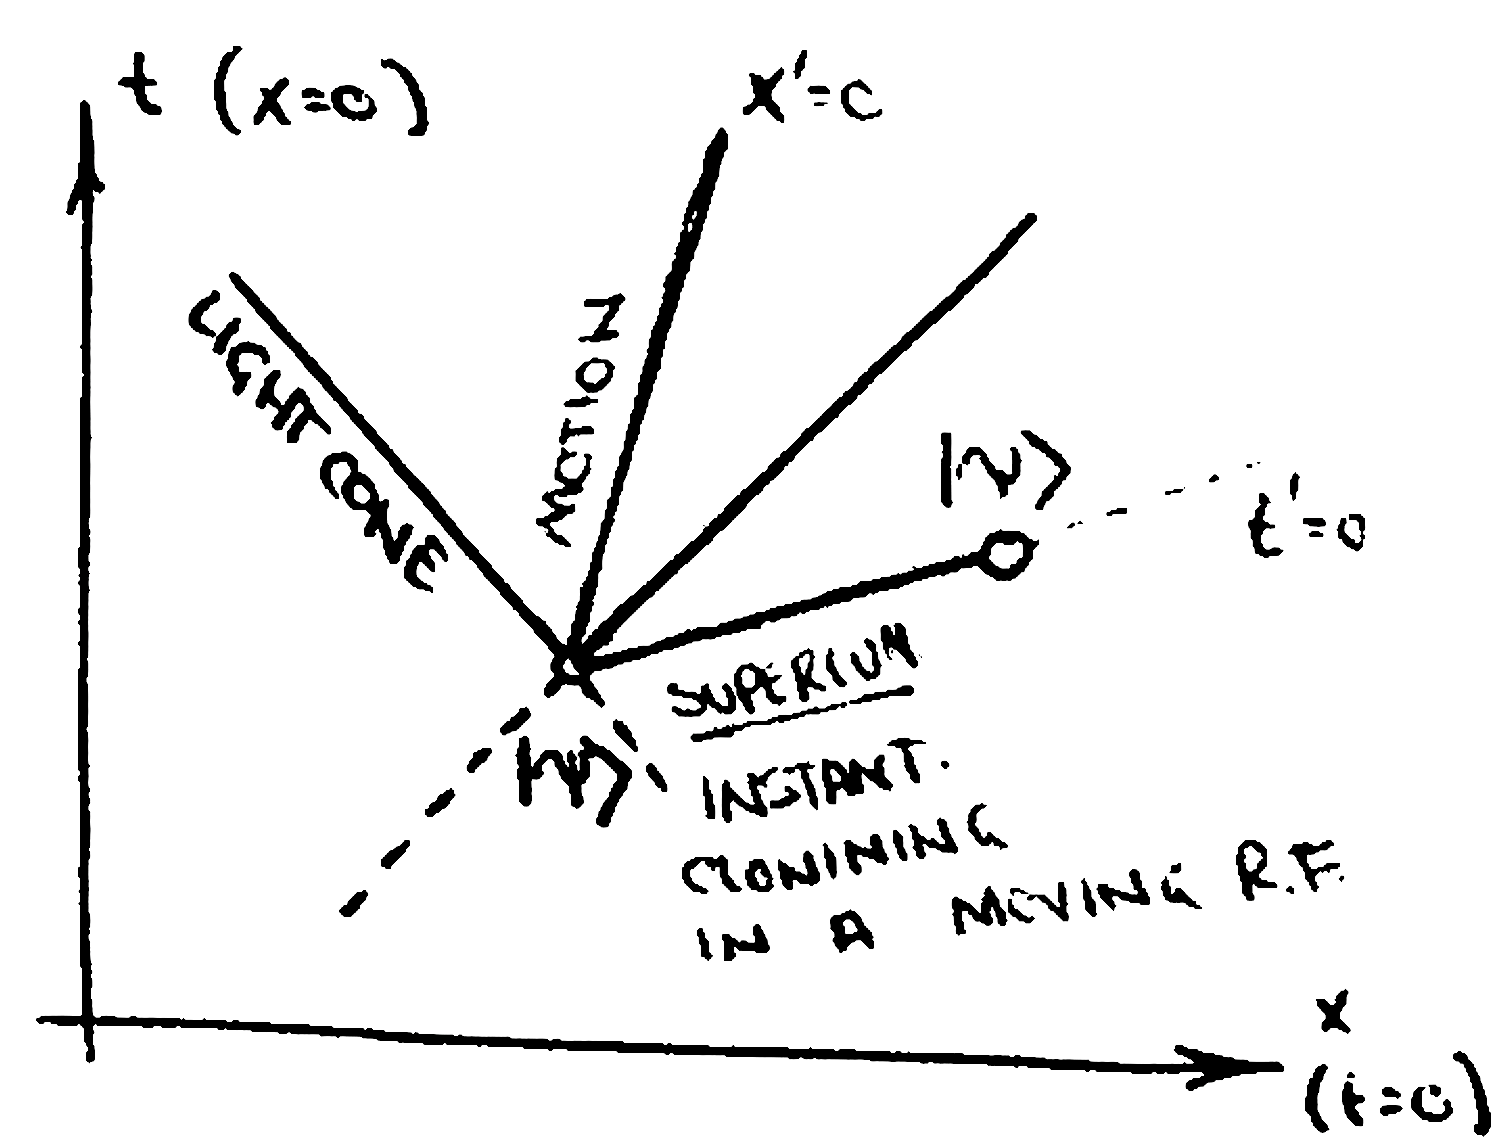 t (x=0)
x'=0
LIGHT CONE
MOTION
|ψ⟩
t'=0
|ψ⟩
SUPERLUM
INSTANT.
CLONINING
IN A MOVING R.F.
x
(t=0)